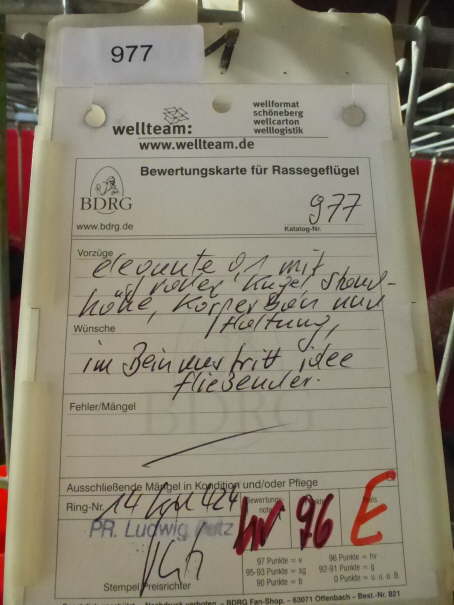 977
wellteam:
wellformat
schöneberg
wellcarton
welllogistik
www.wellteam.de
BDRG
www.bdrg.de
Bewertungskarte für Rassegeflügel
977
Katalog-Nr.
Vorzüge
elegante 0,1 mit
voller Kugel, Stand-
höhe, Körperbau und
Haltung,
Wünsche
im Beinaustritt idee
fließender.
Fehler/Mängel
BDRG
Ausschließende Mängel in Kondition und/oder Pflege
Ring-Nr. 14 424
hv 96 E
PR. Ludwig
97 Punkte = v 96 Punkte = hv
95-93 Punkte = sg 92-91 Punkte = g
90 Punkte = b 0 Punkte = u o B
Stempel Preisrichter
BDRG Fan-Shop 63071 Offenbach - Best.-Nr. 821